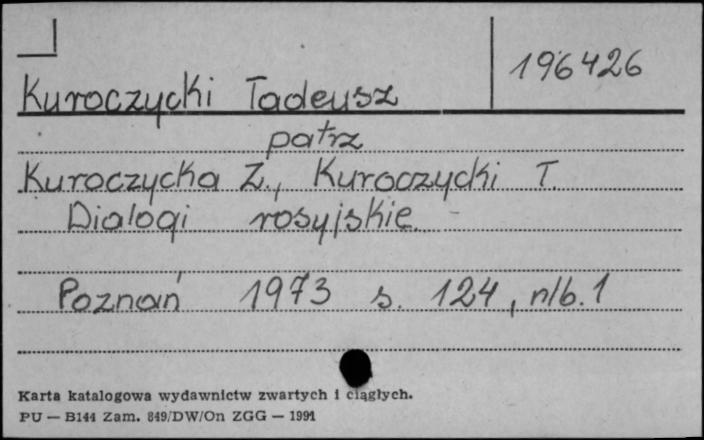 196426
Kuroczycki Tadeusz
patrz
Kuroczycka Z., Kuroczycki T.
Dialogi rosyjskie.
Poznań 1973 s. 124, nlb. 1
Karta katalogowa wydawnictw zwartych i ciągłych.
PU — B144 Zam. 849/DW/On ZGG — 1991